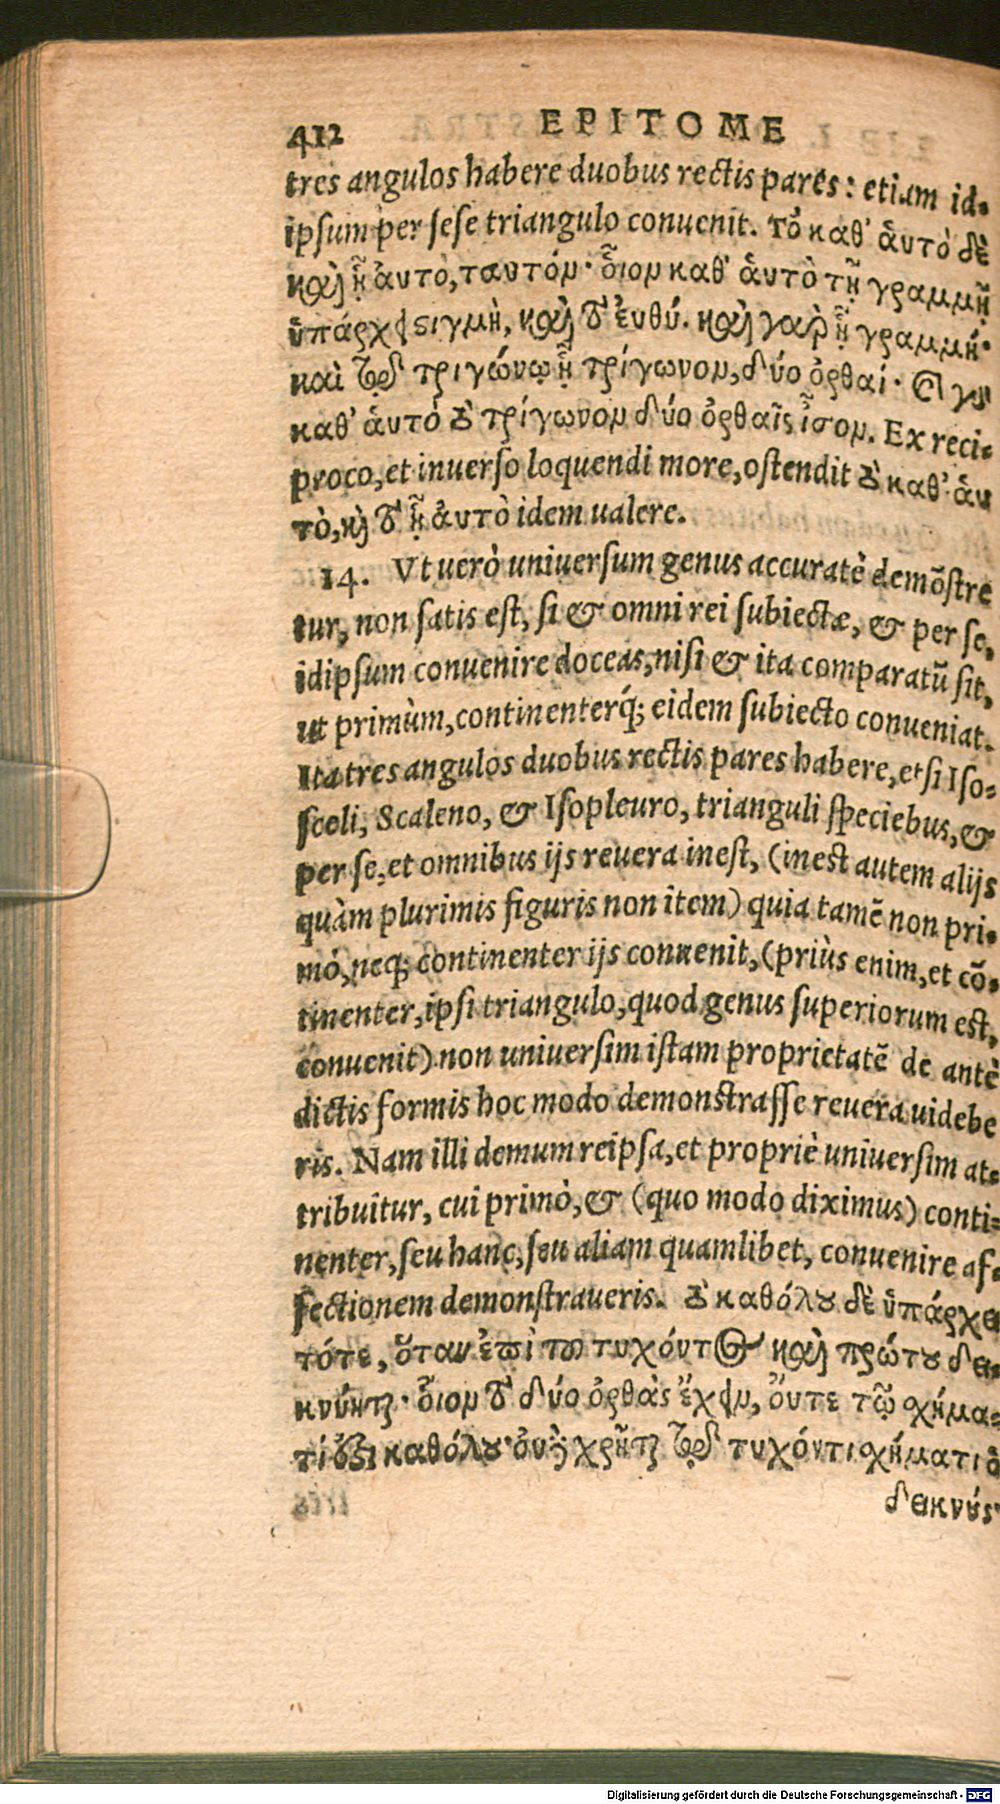 412 EPITOME
tres angulos habere duobus rectis pares: etiam id-
ipsum per sese triangulo conuenit. Τὸ καθ' ἁυτὸ δὲ
καὶ ᾗ ἀυτὸ, ταυτόν· οἷον καθ' ἁυτὸ τῇ γραμμῇ
ὑπάρχει στιγμὴ, καὶ τὸ ἐυθύ. καὶ γαρ ᾗ γραμμή·
καὶ τῷ τριγώνῳ ᾗ τρίγωνον, δύο ὀρθαί· καὶ γὰρ
καθ' ἁυτὸ τὸ τρίγωνον δύο ὀρθαῖς ἴσον. Ex reci-
proco, et inuerso loquendi more, ostendit τὸ καθ' ἁυ
τὸ, καὶ τὸ ᾗ ἀυτὸ idem ualere.
14. Vt uerò uniuersum genus accuratè demõstre
tur, non satis est, si & omni rei subiectæ, & per se,
idipsum conuenire doceas, nisi & ita comparatũ sit,
ut primùm, continenterq́; eidem subiecto conueniat.
Ita tres angulos duobus rectis pares habere, etsi Iso-
sceli, Scaleno, & Isopleuro, trianguli speciebus, &
per se, et omnibus ijs reuera inest, (inest autem alijs
quàm plurimis figuris non item) quia tamẽ non pri-
mò, neq; continenter ijs conuenit, (priùs enim, et cõ-
tinenter, ipsi triangulo, quod genus superiorum est,
conuenit) non uniuersim istam proprietatẽ de antè
dictis formis hoc modo demonstrasse reuera uidebe
ris. Nam illi demum reipsa, et propriè uniuersim at-
tribuitur, cui primò, & (quo modo diximus) conti-
nenter, seu hanc, seu aliam quamlibet, conuenire af-
fectionem demonstraueris. τὸ καθόλου δὲ ὑπάρχει
τότε, ὅταν ἐπὶ τοῦ τυχόντος καὶ πρώτου δει-
κνύηται· οἷον τὸ δύο ὀρθὰς ἔχειν, ὄυτε τῷ σχήμα-
τί ὅξι καθόλου· ὀυ γὸ χρῆται τῷ τυχόντι σχήματι ὁ
δεικνύς·